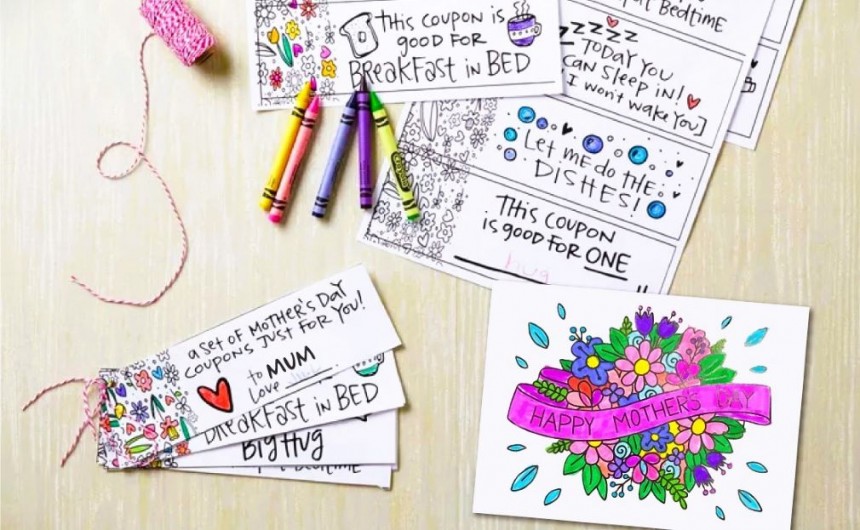 THIS COUPON is
good FOR
BREAKFAST in BED
BEDTIME
ZZZZZ
TODAY YOU
CAN SLEEP iN!
[I won't wake you]
LET ME do THE
DISHES!
THIS COUPON
is good FOR ONE
hug
Crayola
a SET of MOTHER'S DAY
COUPONS JUST FOR YOU!
to MUM
Love
BREAKFAST iN BED
Big Hug
BEDTIME
HAPPY MOTHER'S DAY